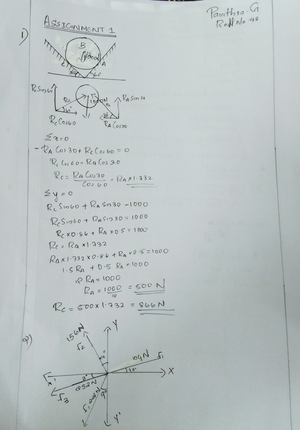 ASSIGNMENT 1
Panthra.G
Roll No:
1)
B
C
A
Rc Sin60
RA Sin30
Rc Cos60
RA Cos30
Σx=0
-RA Cos30+Rc Cos60=0
Rc Cos60=RA Cos30
Rc=RA Cos30/Cos60=RA×1.732
Σy=0
Rc Sin60+RA Sin30-1000
Rc Sin60+RA Sin30=1000
Rc×0.86+RA×0.5=1000
Rc=RA×1.732
RA×1.732×0.86+RA×0.5=1000
1.5RA+0.5RA=1000
RA=1000
RA=1000/2=500N
Rc=500×1.732=866N
2)
Y
f2
f1
X
252N
f3
Y'